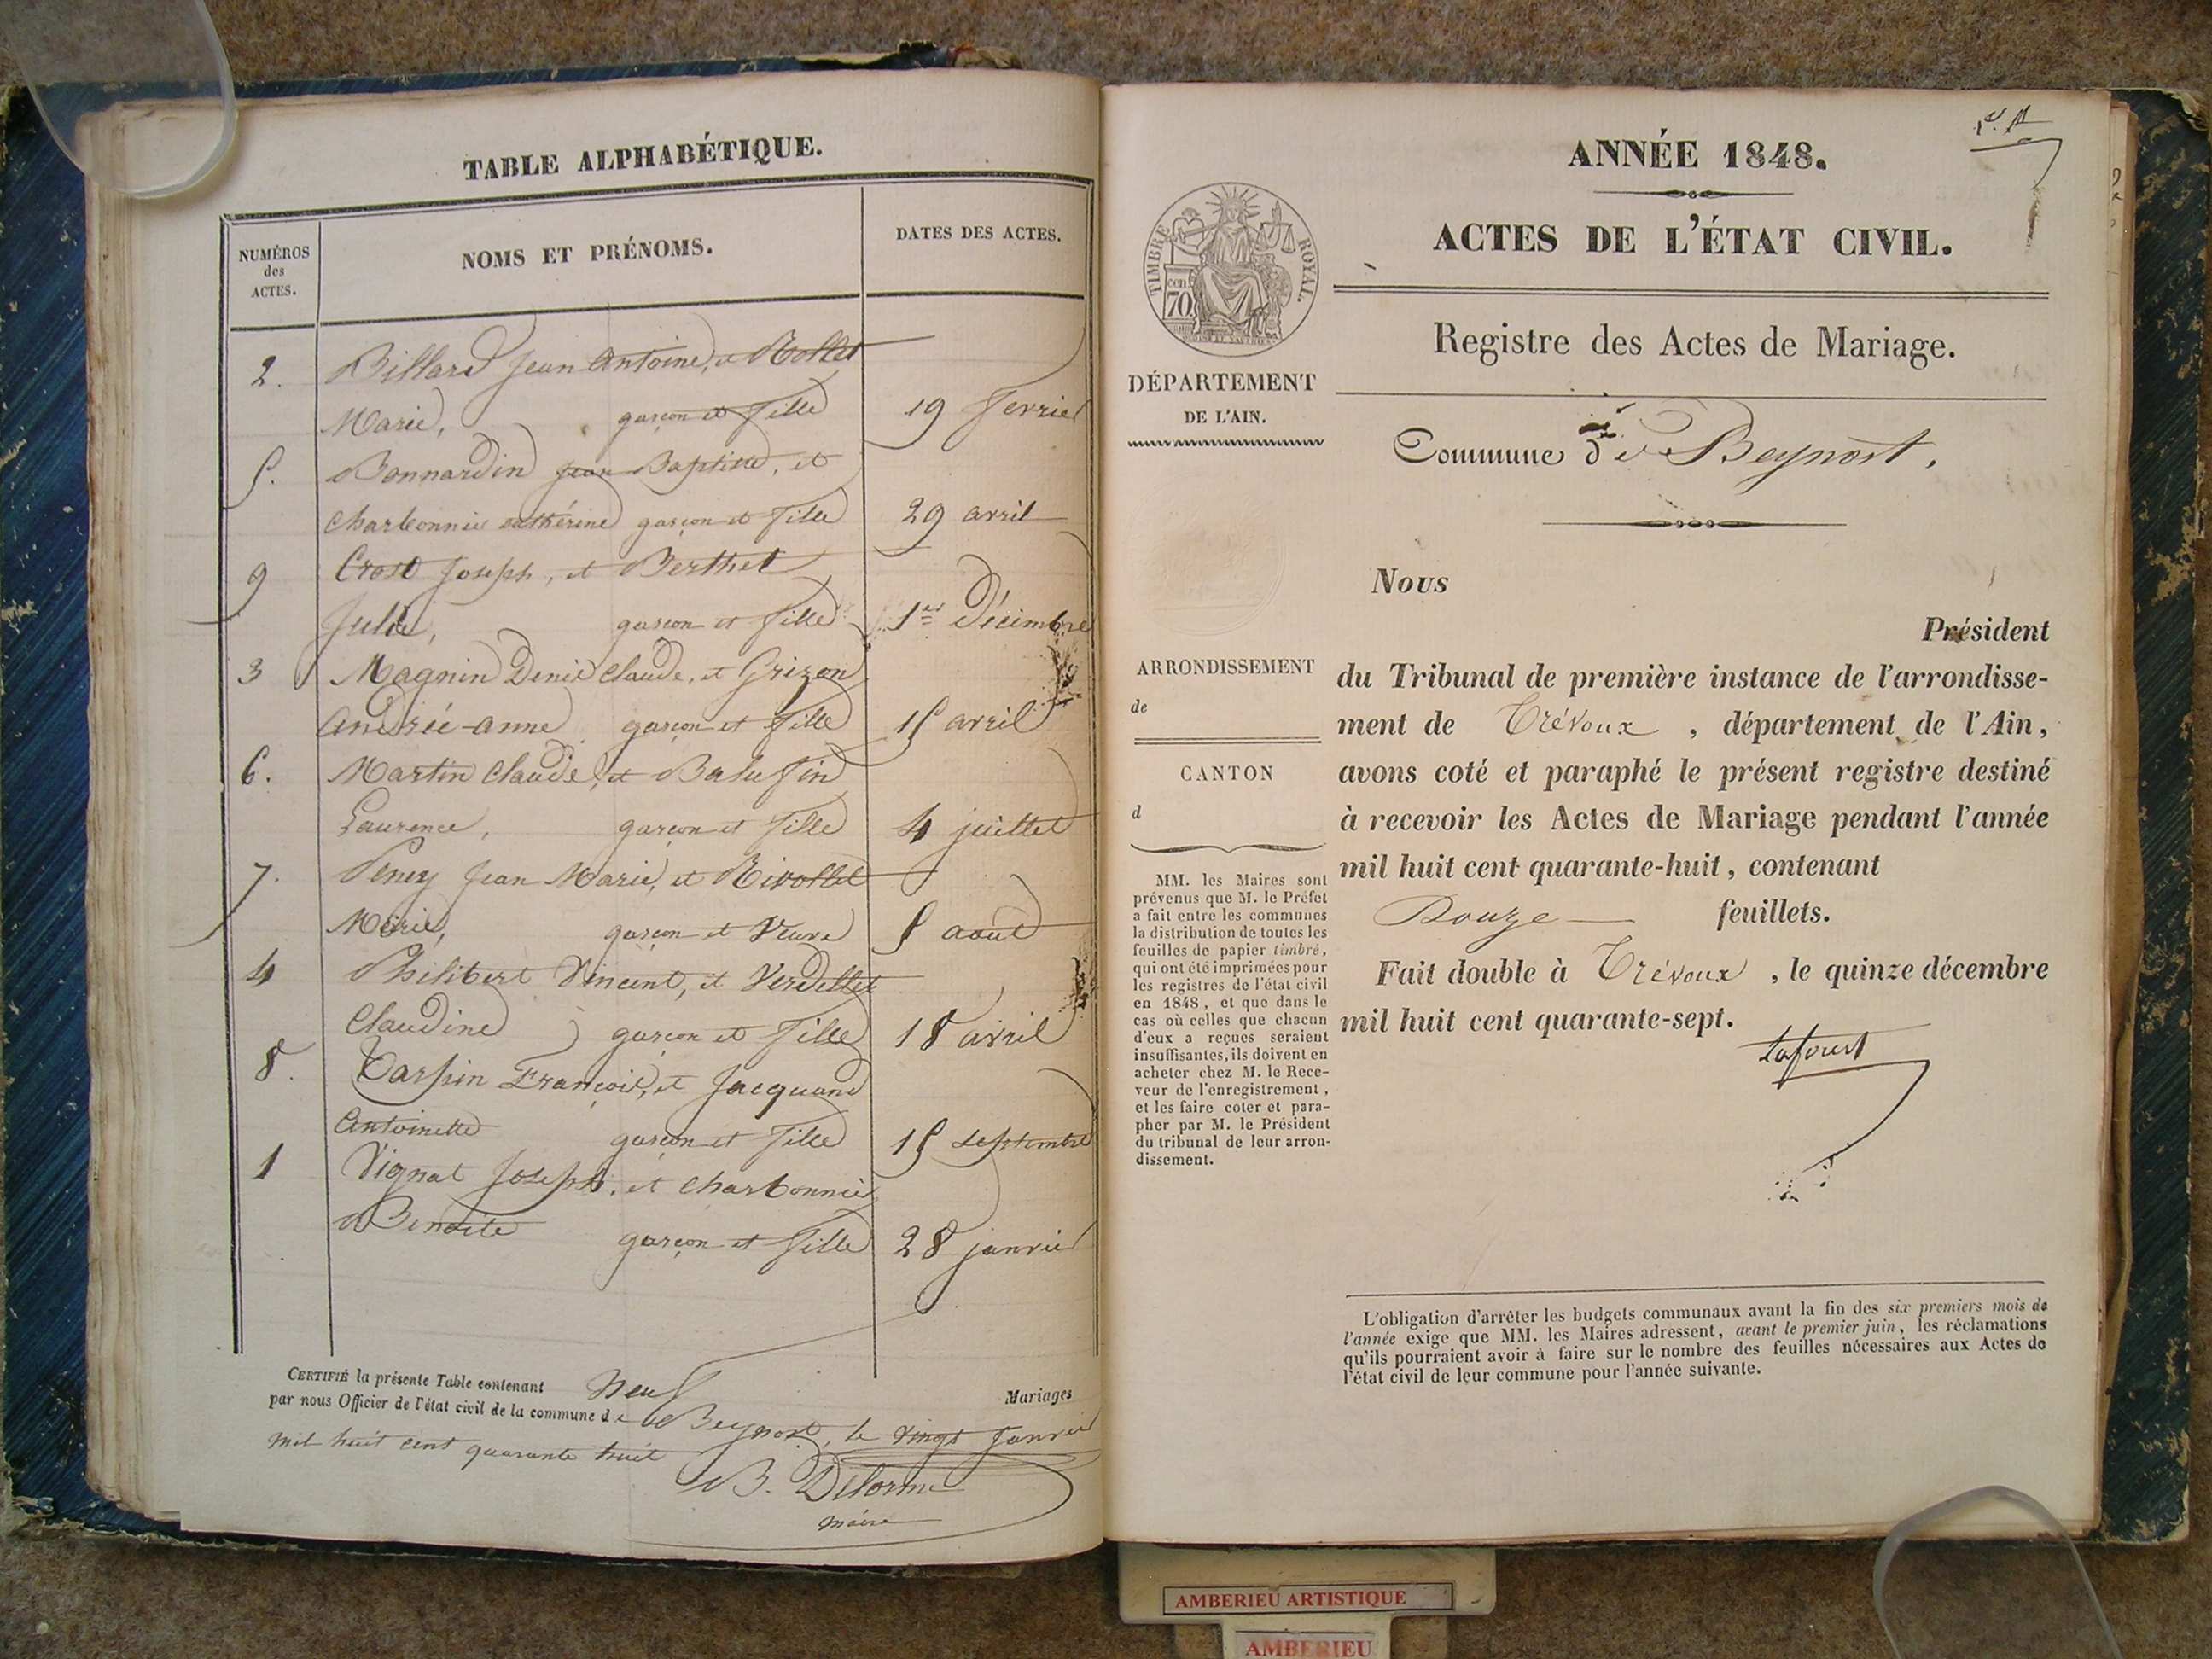 TABLE ALPHABÉTIQUE.
NUMÉROS
des
ACTES.
NOMS ET PRÉNOMS.
DATES DES ACTES.
2. Billard Jean Antoine, et Rollet
Marie, garçon et fille 19 fevrier
5. Bonnardin Jean Baptiste, et
Charbonnier cathérine garçon et fille 29 avril
9 Crost Joseph, et Berthet
Julie, garçon et fille 1er Décembre
3 Magnin Denis Claude, et Grizon
andrée-anne garçon et fille 15 avril
6. Martin Claude, et Balufin
Laurence, garçon et fille 4 juillet
7. Peney Jean Marie, et Rivollet
Marie, garçon et Veuve 5 aout
4 Philibert Vincent, et Verdellet
Claudine garçon et fille 18 avril
8. Tarpin François, et Jacquand
Antoinette garçon et fille 15 septembre
1 Vignat Joseph, et Charbonnier
Benoite garçon et fille 28 janvier
CERTIFIÉ la présente Table contenant Neuf Mariages
par nous Officier de l'état civil de la commune de Beynost, le vingt Janvier
mil huit cent quarante huit
B. Delorme
maire
ANNÉE 1848.
ACTES DE L'ÉTAT CIVIL.
Registre des Actes de Mariage.
Commune de Beynost.
TIMBRE ROYAL.
70 cen
DÉPARTEMENT
DE L'AIN.
ARRONDISSEMENT
de
CANTON
d
MM. les Maires sont
prévenus que M. le Préfet
a fait entre les communes
la distribution de toutes les
feuilles de papier timbré,
qui ont été imprimées pour
les registres de l'état civil
en 1848, et que dans le
cas où celles que chacun
d'eux a reçues seraient
insuffisantes, ils doivent en
acheter chez M. le Rece-
veur de l'enregistrement,
et les faire coter et para-
pher par M. le Président
du tribunal de leur arron-
dissement.
Nous
Président
du Tribunal de première instance de l'arrondisse-
ment de Trévoux , département de l'Ain,
avons coté et paraphé le présent registre destiné
à recevoir les Actes de Mariage pendant l'année
mil huit cent quarante-huit, contenant
Douze feuillets.
Fait double à Trévoux , le quinze décembre
mil huit cent quarante-sept.
Laforest
L'obligation d'arrêter les budgets communaux avant la fin des six premiers mois de
l'année exige que MM. les Maires adressent, avant le premier juin, les réclamations
qu'ils pourraient avoir à faire sur le nombre des feuilles nécessaires aux Actes de
l'état civil de leur commune pour l'année suivante.
AMBERIEU ARTISTIQUE
AMBERIEU